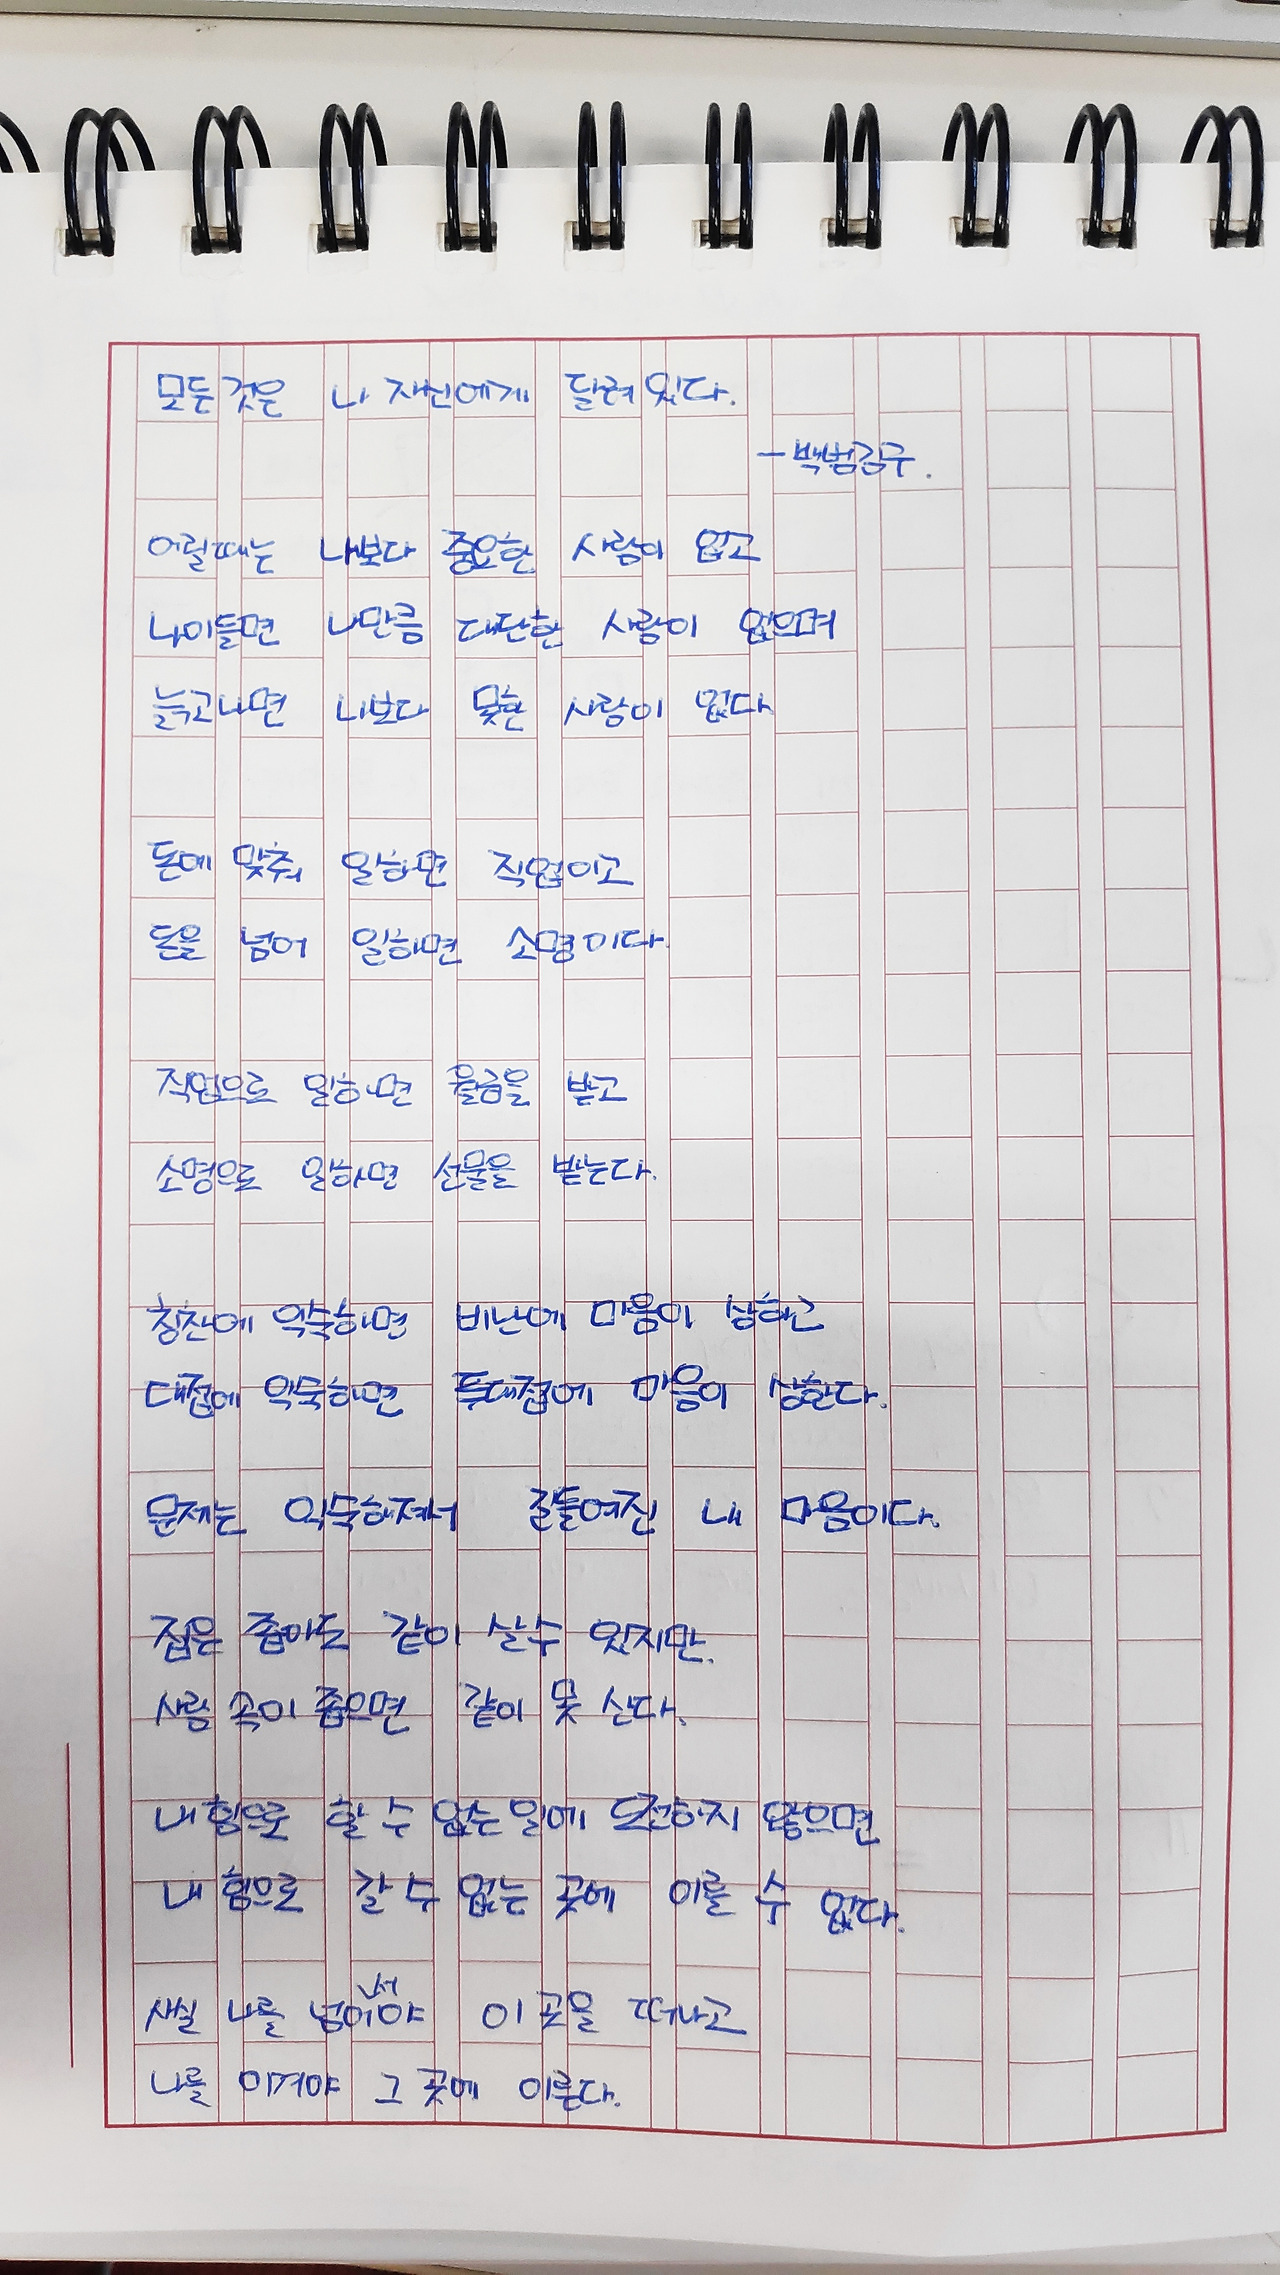 모든 것은 나 자신에게 달려있다.
- 백범김구.
어릴때는 나보다 중요한 사람이 없고
나이들면 나만큼 대단한 사람이 없으며
늙고나면 나보다 못한 사람이 없다
돈에 맞춰 일하면 직업이고
돈을 넘어 일하면 소명이다.
직업으로 일하면 월급을 받고
소명으로 일하면 선물을 받는다.
칭찬에 익숙하면 비난에 마음이 상하고
대접에 익숙하면 푸대접에 마음이 상한다.
문제는 익숙하져서 길들여진 내 마음이다.
집은 좁아도 같이 살 수 있지만.
사람 속이 좁으면 같이 못 산다.
내 힘으로 할 수 없는 일에 도전하지 않으면
내 힘으로 갈 수 없는 곳에 이를 수 없다.
사실 나를 넘어서야 이 곳을 떠나고
나를 이겨야 그 곳에 이른다.